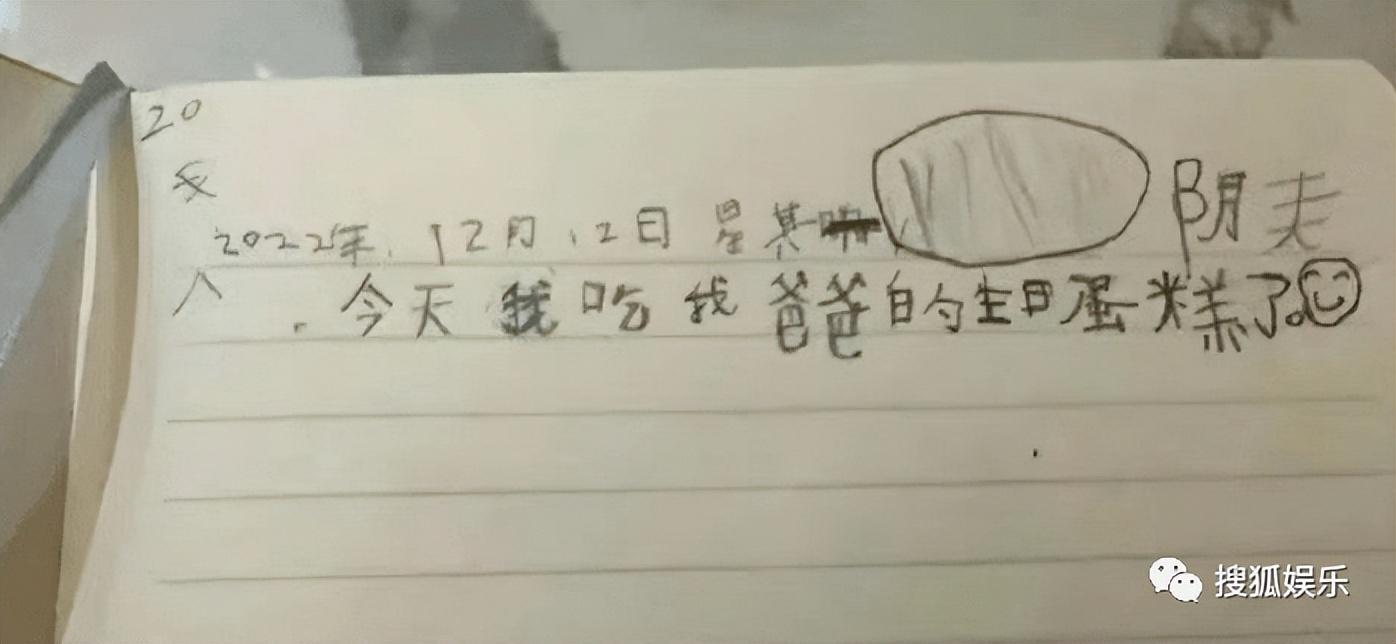 20
2022年.12月.2日 星其 阴天
今天我吃我爸爸的生日蛋糕了。
搜狐娱乐